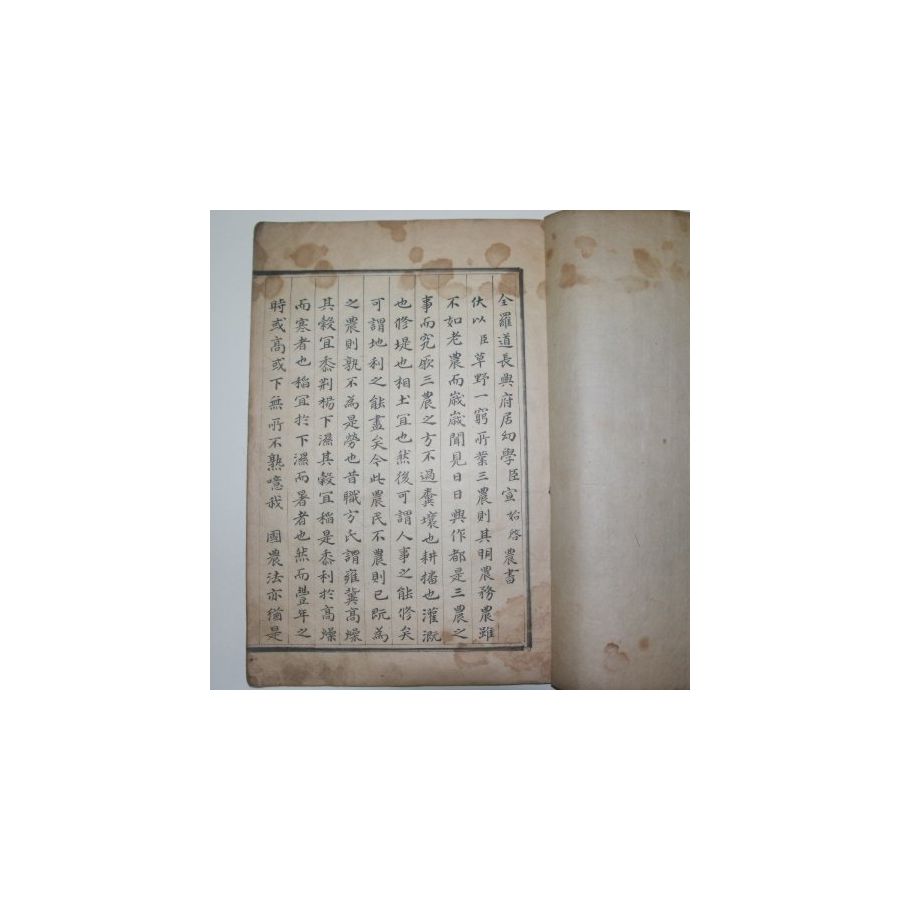 全羅道長興府居幼學臣宣始啓農書
伏以臣草野一窮所業三農則其明農務農雖
不如老農而歲歲聞見日日興作都是三農之
事而究厥三農之方不過糞壤也耕播也灌漑
也修堤也相土宜也然後可謂人事之能修矣
可謂地利之能盡矣今此農民不農則已旣為
之農則孰不為是勞也昔職方氏謂雍冀高燥
其穀宜黍荊楊下濕其穀宜稻是黍利於高燥
而寒者也稻宜於下濕而暑者也然而豐年之
時或高或下無所不熟噫我 國農法亦猶是